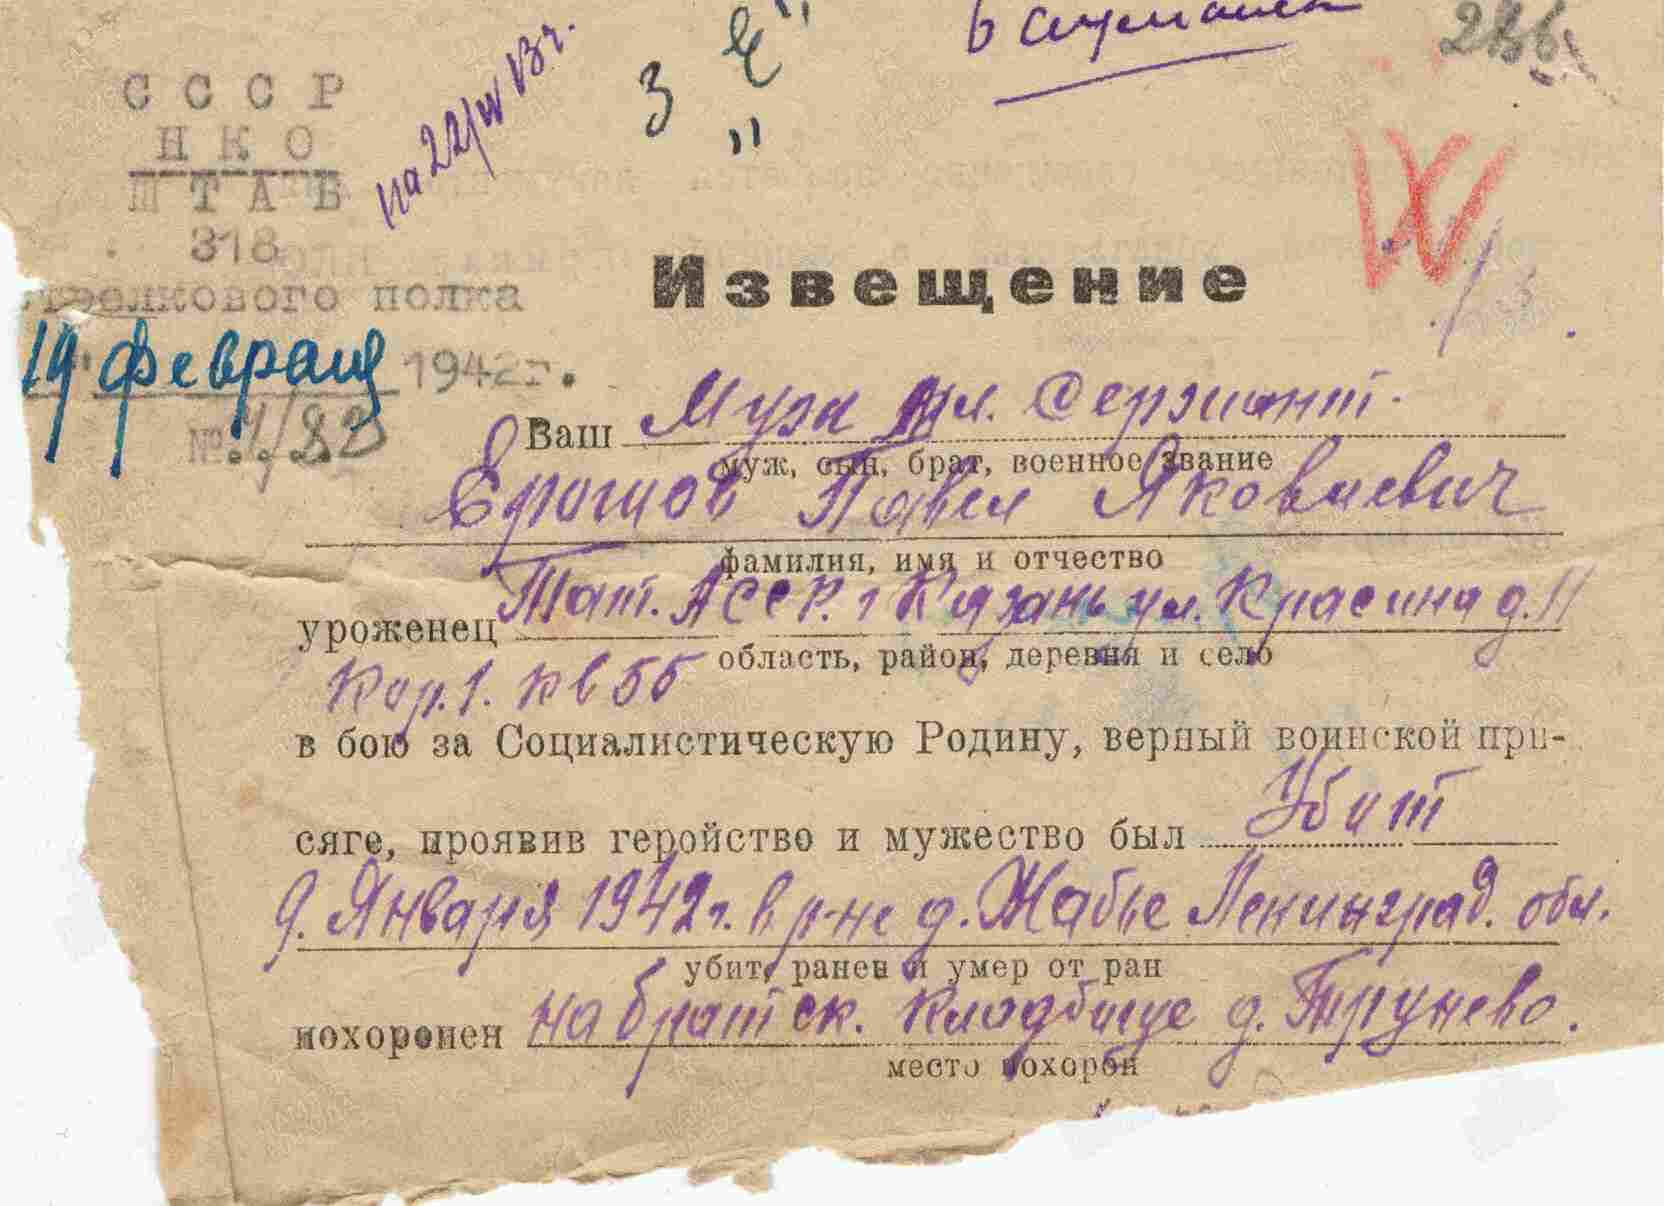 в
на 22/IV 13 г.
3
С С С Р
Н К О
ШТАБ
318
стрелкового полка
19 февраля 1942г.
№ 1/82
Извещение
Ваш Муж мл. Сержант.
муж, сын, брат, военное звание
Ерошов Павел Яковлевич
фамилия, имя и отчество
уроженец Тат. АССР. г Казань ул. Красина д. 11
область, район, деревня и село
Кор. 1. кв 55
в бою за Социалистическую Родину, верный воинской при-
сяге, проявив геройство и мужество был Убит
9. Января 1942 г. в р-не д. Жабье Ленинград. обл.
убит, ранен и умер от ран
похоронен на братск. кладбище д. Трунево.
место похорон